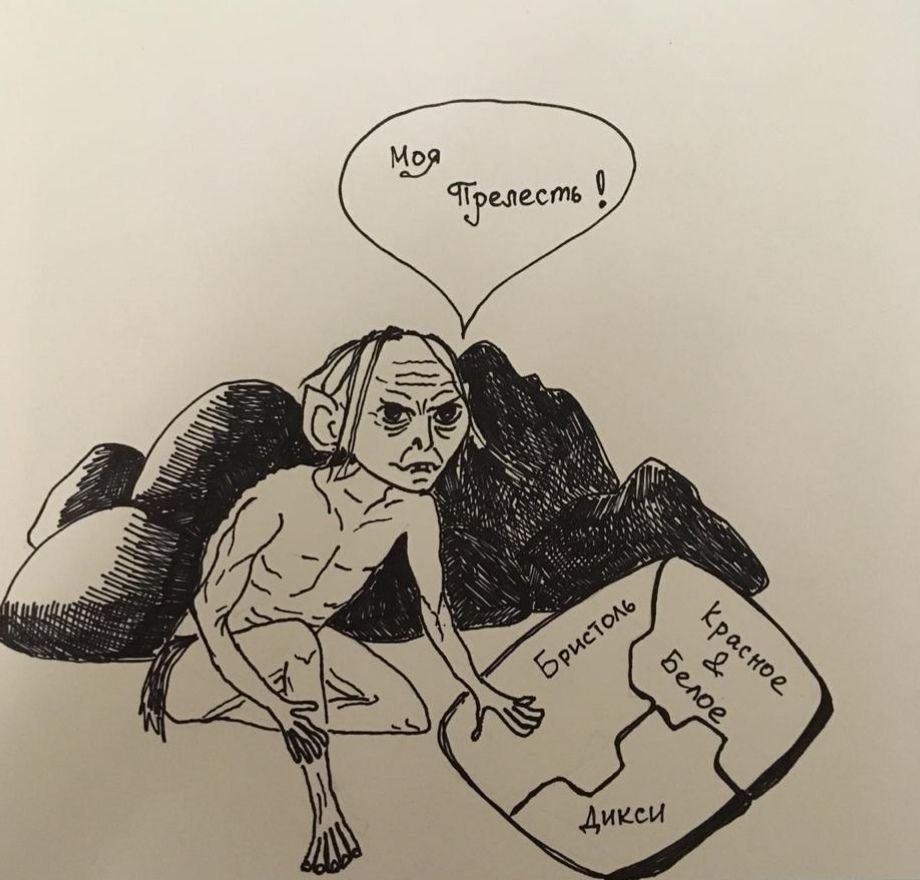 Моя
Прелесть!
Бристоль
Красное
&
Белое
Дикси